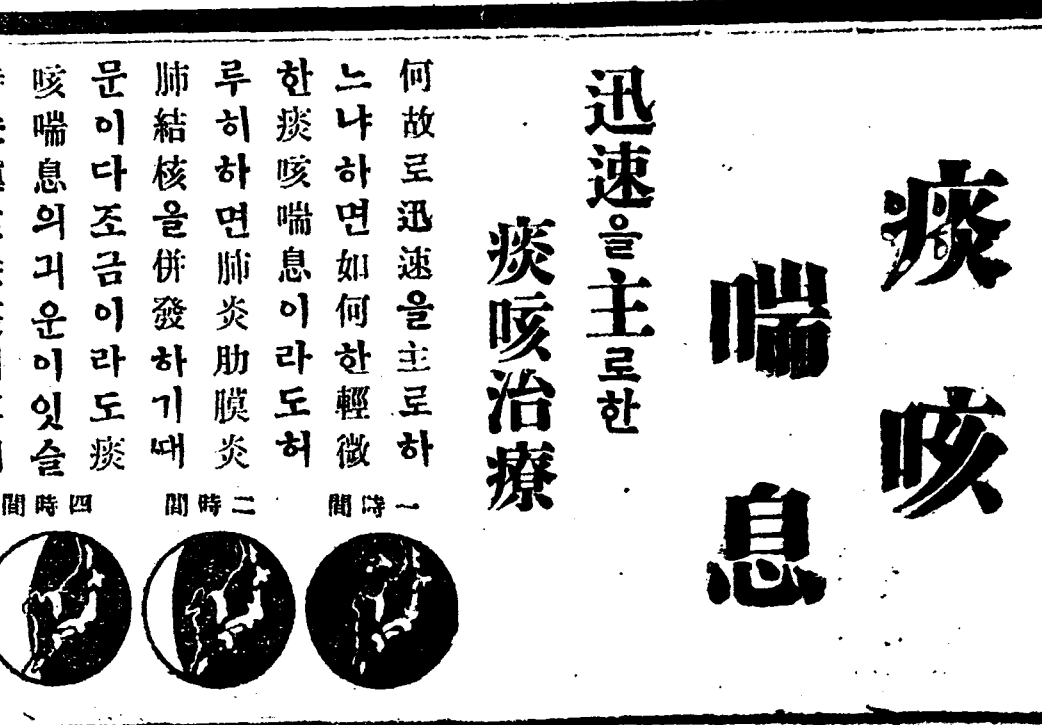 痰咳
喘息
迅速을主로한
痰咳治療
何故로迅速을主로하
느냐하면如何한輕微
한痰咳喘息이라도허
루히하면肺炎肋膜炎
肺結核을併發하기ᄯᅢ
문이다조금이라도痰
咳喘息의긔운이잇슬
一時間
二時間
四時間